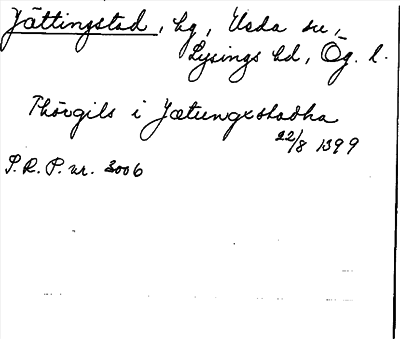 Jättingstad, hg, Väda sn,
Lysings hd, Ög. l.
Thörgils i Jætungxstadha
22/8 1399
S. R. P. nr. 3006